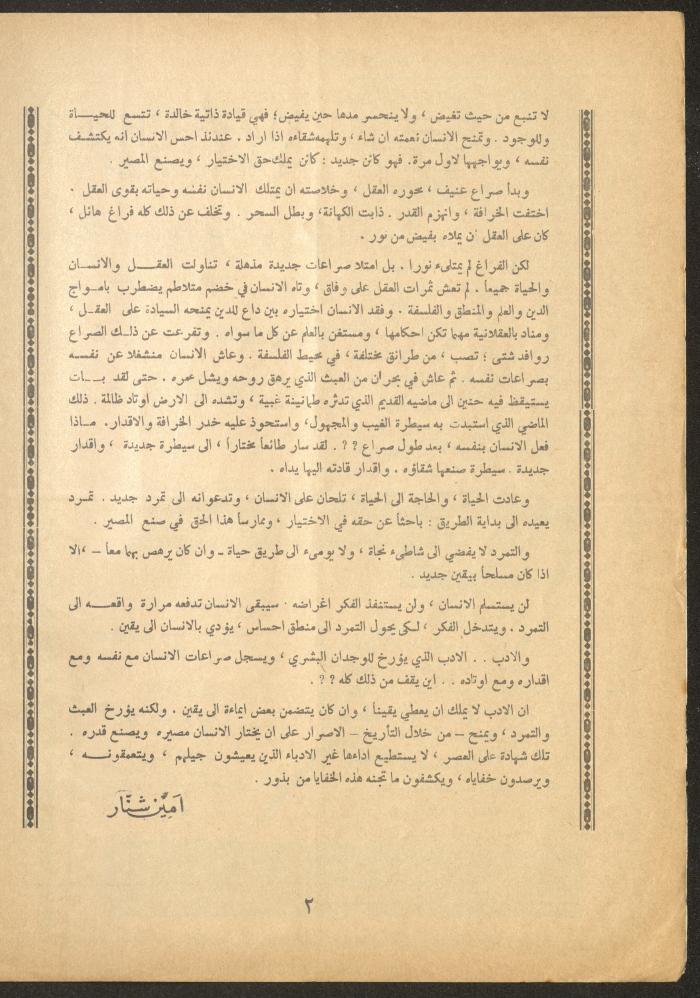 لا تنبع من حيث تغيض ، ولا ينحسر مدها حين يفيض ؛ فهي قيادة ذاتية خالدة ، تتسع للحيــاة
وللوجود . وتمنح الانسان نعمته ان شاء ، وتلهمه شقاءه اذا اراد . عندئذ احس الانسان انه يكتشف
نفسه ، ويواجهها لاول مرة. فهو كائن جديد : كائن يملك حق الاختيار ، ويصنع المصير .
وبدأ صراع عنيف ، محوره العقل ، وخلاصته ان يمتلك الانسان نفسه وحياته بقوى العقل .
اختفت الخرافة ، وانهزم القدر . ذابت الكهانة، وبطل السحر . وتخلف عن ذلك كله فراغ هائل ،
كان على العقل ان يملأه بفيض من نور .
لكن الفراغ لم يمتلىء نورا . بل امتلا صراعات جديدة مذهلة ، تناولت العقــل والانسان
والحياة جميعاً . لم تعش ثمرات العقل على وفاق ، وتاه الانسان في خضم متلاطم يضطرب بامــواج
الدين والعلم والمنطق والفلسفة . وفقد الانسان اختياره بين داع للدين يمنحه السيادة على العقل ،
ومناد بالعقلانية مهما تكن احكامها ، ومستغن بالعلم عن كل ما سواه . وتفرعت عن ذلــك الصراع
روافد شتى ؛ تصب ، من طرائق مختلفة ، في محيط الفلسفة . وعاش الانسان منشغلا عن نفســه
بصراعات نفسه . ثم عاش في بحران من العبث الذي يرهق روحه ويشل عمره . حتى لقد بــات
يستيقظ فيه حنين الى ماضيه القديم الذي تدثره طمانينة غبية ، وتشده الى الارض اوتاد ظالمة . ذلك
الماضي الذي استبدت به سيطرة الغيب والمجهول، واستحوذ عليه خدر الخرافة والاقدار. مــاذا
فعل الانسان بنفسه ، بعد طول صراع ? ? . لقد سار طائعاً مختاراً ، الى سيطرة جديدة ، واقدار
جديدة . سيطرة صنعها شقاؤه . واقدار قادته اليها يداه .
وعادت الحياة ، والحاجة الى الحياة ، تلحان على الانسان ، وتدعوانه الى تمرد جديد . تمــرد
يعيده الى بداية الطريق : باحثاً عن حقه في الاختيار ، وممارساً هذا الحق في صنع المصير .
والتمرد لا يفضي الى شاطىء نجاة ، ولا يومىء الى طريق حياة – وان كان يرهص بهما معاً – ، الا
اذا كان مسلحاً بيقين جديد .
لن يستسلم الانسان ، ولن يستنفذ الفكر اغراضه . سيبقى الانسان تدفعه مرارة واقعــه الى
التمرد . ويتدخل الفكر ، لكي يحول التمرد الى منطق احساس ، يؤدي بالانسان الى يقين .
والادب . . الادب الذي يؤرخ للوجدان البشري ، ويسجل صراعات الانسان مع نفسه ومع
اقداره ومع اوتاده . . اين يقف من ذلك كله ? ? .
ان الادب لا يملك ان يعطي يقيناً ، وان كان يتضمن بعض ايماءة الى يقين . ولكنه يؤرخ العبث
والتمرد ، ويمنح – من خلال التأريخ – الاصرار على ان يختار الانسان مصيره ويصنع قدره .
تلك شهادة على العصر ، لا يستطيع اداءها غير الادباء الذين يعيشون جيلهم ، ويتعمقونــه ،
ويرصدون خفاياه ، ويكشفون ما تجنه هذه الخفايا من بذور .
امين شنّار
٢